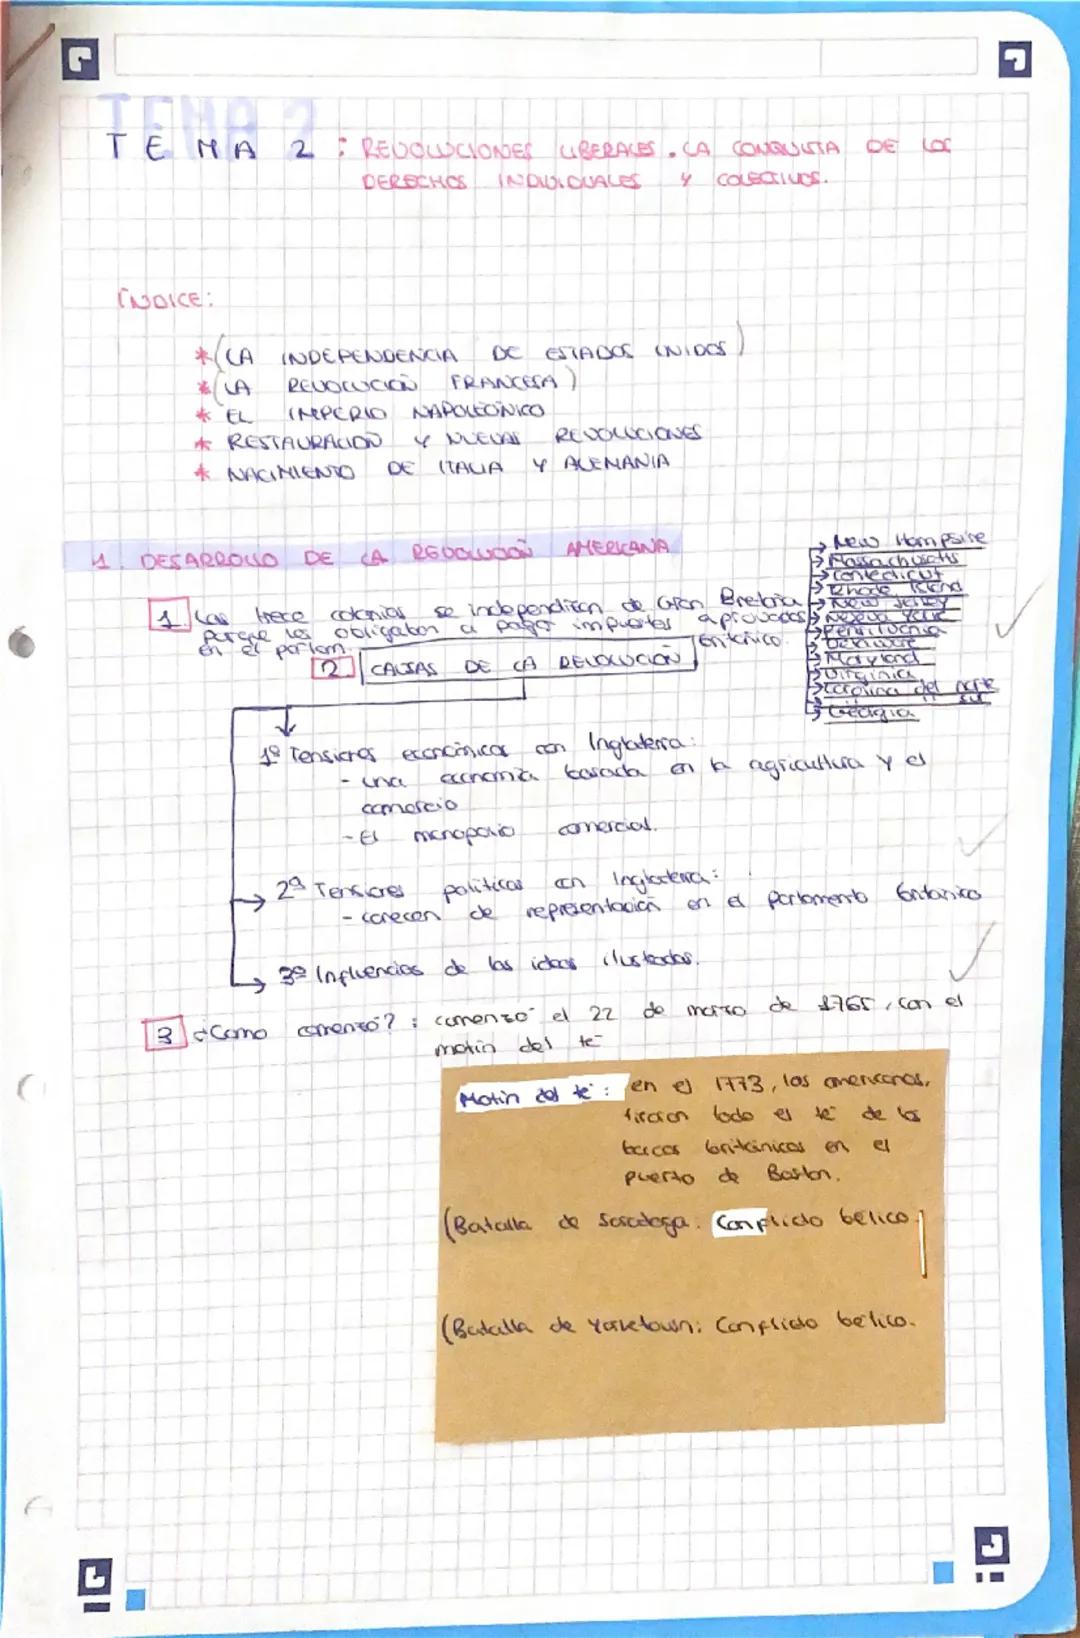 TEMA 2
TEMA 2 : REVOLUCIONES LIBERALES. LA CONQUISTA DE LOS
DERECHOS INDIVIDUALES Y COLECTIVOS.
ÍNDICE:
* (LA INDEPENDENCIA DE ESTADOS UNIDOS)
* (LA REVOLUCIÓN FRANCESA)
* EL IMPERIO NAPOLEÓNICO
* RESTAURACIÓN Y NUEVAS REVOLUCIONES
* NACIMIENTO DE ITALIA Y ALEMANIA
1. DESARROLLO DE LA REVOLUCIÓN AMERICANA
1. Las trece colonias se independizan de Gran Bretaña
porque les obligaban a pagar impuestos aprobados
en el parlam. británico.
→ New Hampsire
→ Massachusetts
→ Conecticut
→ Rhode Island
→ New Jersey
→ Nueva York
→ Pensilvania
→ Delaware
→ Maryland
→ Virginia
→ Carolina del norte
→ " " sur
→ Georgia
2 CAUSAS DE LA REVOLUCIÓN
1º Tensiones económicas con Inglaterra:
- una economía basada en la agricultura y el
comercio
- El monopolio comercial.
2ª Tensiones políticas con Inglaterra:
- carecen de representación en el parlamento britanico
3º Influencias de las ideas ilustradas.
3 ¿Como comenzó? : comenzó el 22 de marzo de 1765, con el
motín del té
Motín del té : en el 1773, los americanos,
tiraron todo el té de los
barcos británicos en el
puerto de Boston.
(Batalla de Saratoga: Conflicto bélico.)
(Batalla de Yorktown: Conflicto bélico.